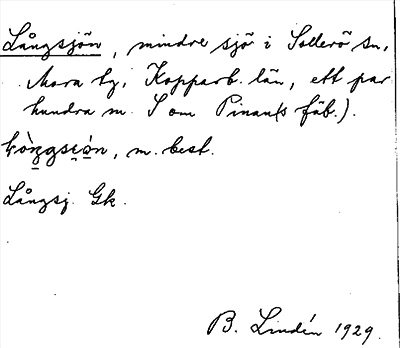 Långsjön, mindre sjö i Sollerö sn,
Mora tg, Kopparb. län, ett par
hundra m. S om Pinan(s fäb.).
m. best.
Långsj. Gk.
B. Lindén 1929.